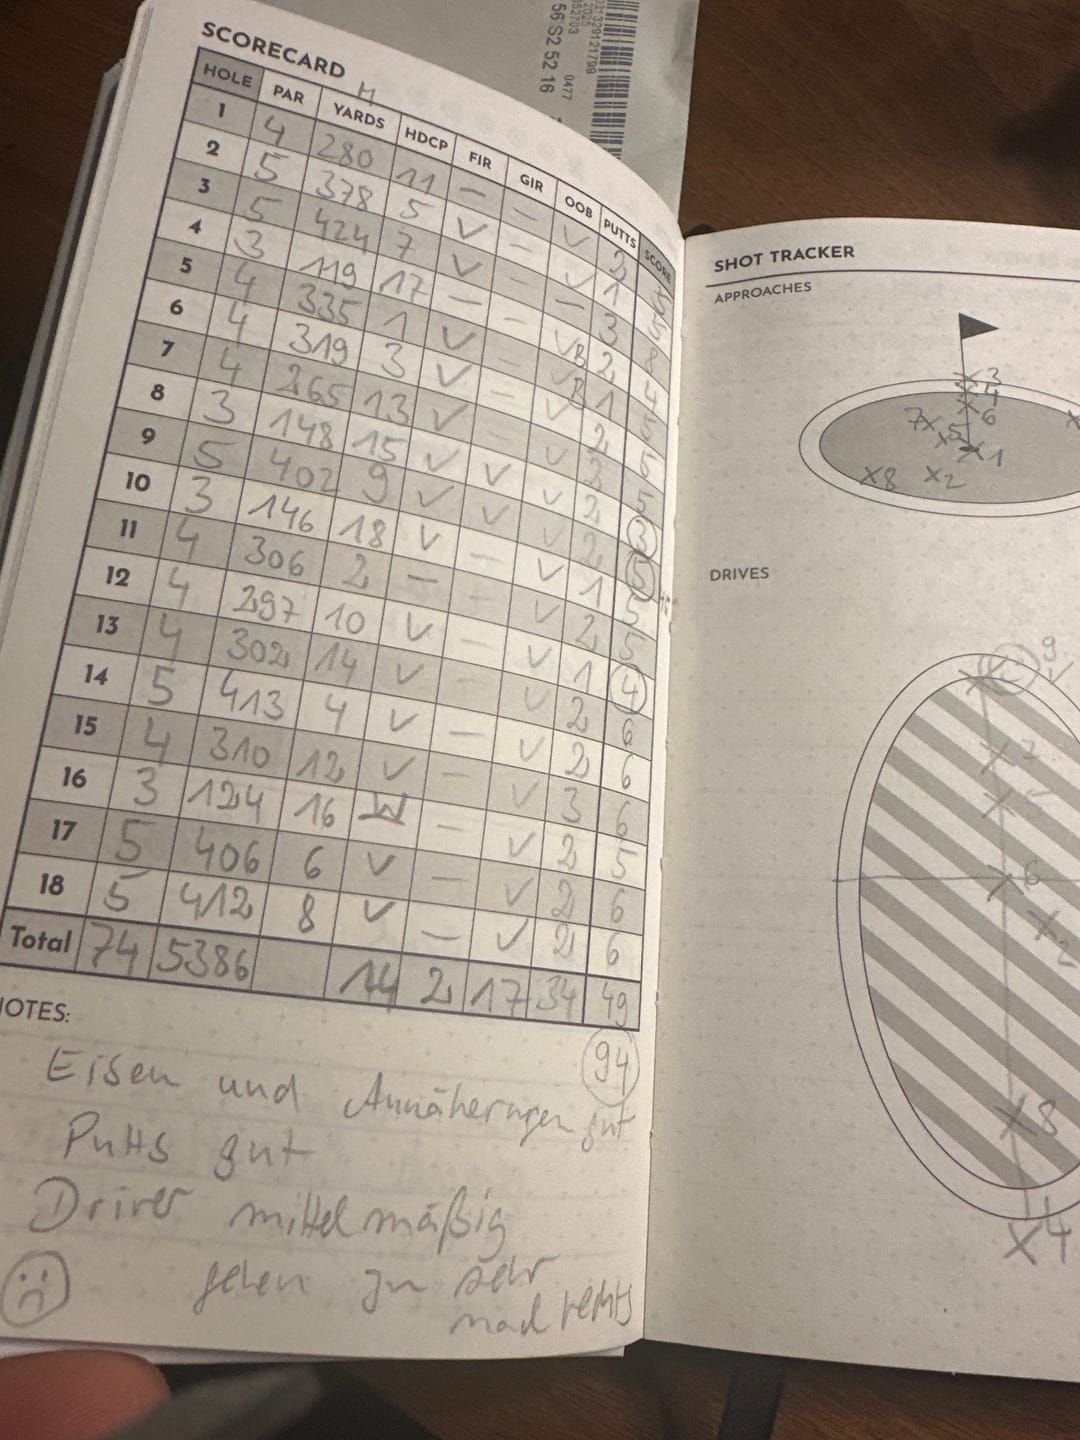 56 S2 52 16
0477
SCORECARD
M
HOLE PAR YARDS HDCP FIR GIR OOB PUTTS SCORE
1 4 280 11 – – ✓ 2
2 5 378 5 ✓ – ✓ 1 5
3 5 424 7 ✓ – – 3 8
4 3 119 17 – – ✓B 2 4
5 4 335 1 ✓ – ✓B 1 5
6 4 319 3 ✓ – ✓ 2 5
7 4 265 13 ✓ – ✓ 2 5
8 3 148 15 ✓ ✓ ✓ 2 3
9 5 402 9 ✓ ✓ ✓ 2 5
10 3 146 18 ✓ – ✓ 1 5
11 4 306 2 – – ✓ 2 5
12 4 297 10 ✓ – ✓ 1 4
13 4 302 14 ✓ – ✓ 2 6
14 5 413 4 ✓ – ✓ 2 6
15 4 310 12 ✓ – ✓ 3 6
16 3 124 16 – ✓ 2 5
17 5 406 6 ✓ – ✓ 2 6
18 5 412 8 ✓ – ✓ 2 6
Total 74 5386 14 2 17 34 49
94
NOTES:
Eisen und Annäherungen gut
Putts gut
Driver mittelmäßig
gehen zu sehr
nach rechts
SHOT TRACKER
APPROACHES
3
4
6
7 5
1
8 2
DRIVES
9
7
5
6
2
8
4